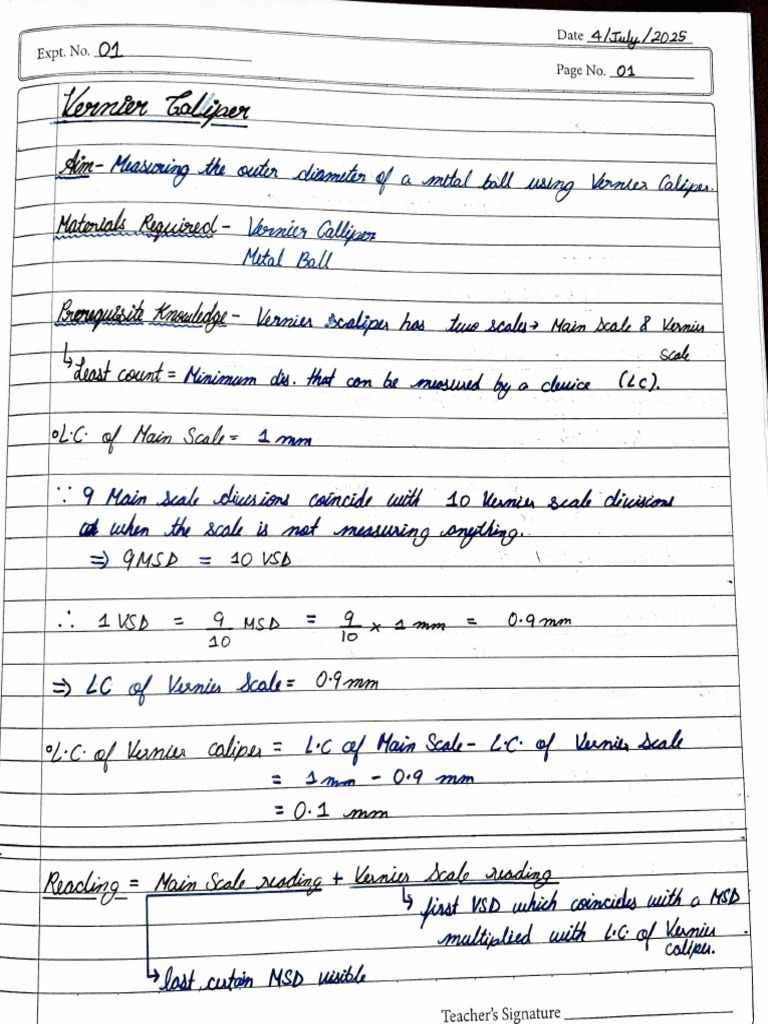 Date 4/July/2025
Expt. No. 01
Page No. 01
Vernier Caliper
Aim- Measuring the outer diameter of a metal ball using Vernier Caliper.
Materials Required - Vernier Calliper
Metal Ball
Prerequisite Knowledge - Vernier scaliper has two scales→ Main Scale & Vernier
Scale
↳ Least count = Minimum dis. that can be measured by a device (LC).
∘L.C. of Main Scale = 1 mm
∵ 9 Main scale divisions coincide with 10 Vernier scale divisions
when the scale is not measuring anything.
⇒ 9MSD = 10 VSD
∴ 1 VSD = 9/10 MSD = 9/10 × 1 mm = 0.9 mm
⇒ LC of Vernier Scale = 0.9 mm
∘L.C. of Vernier caliper = L.C of Main Scale - L.C. of Vernier Scale
= 1 mm - 0.9 mm
= 0.1 mm
Reading = Main Scale reading + Vernier Scale reading
↳ first VSD which coincides with a MSD
multiplied with L.C. of Vernier
caliper.
↳ last certain MSD visible
Teacher's Signature